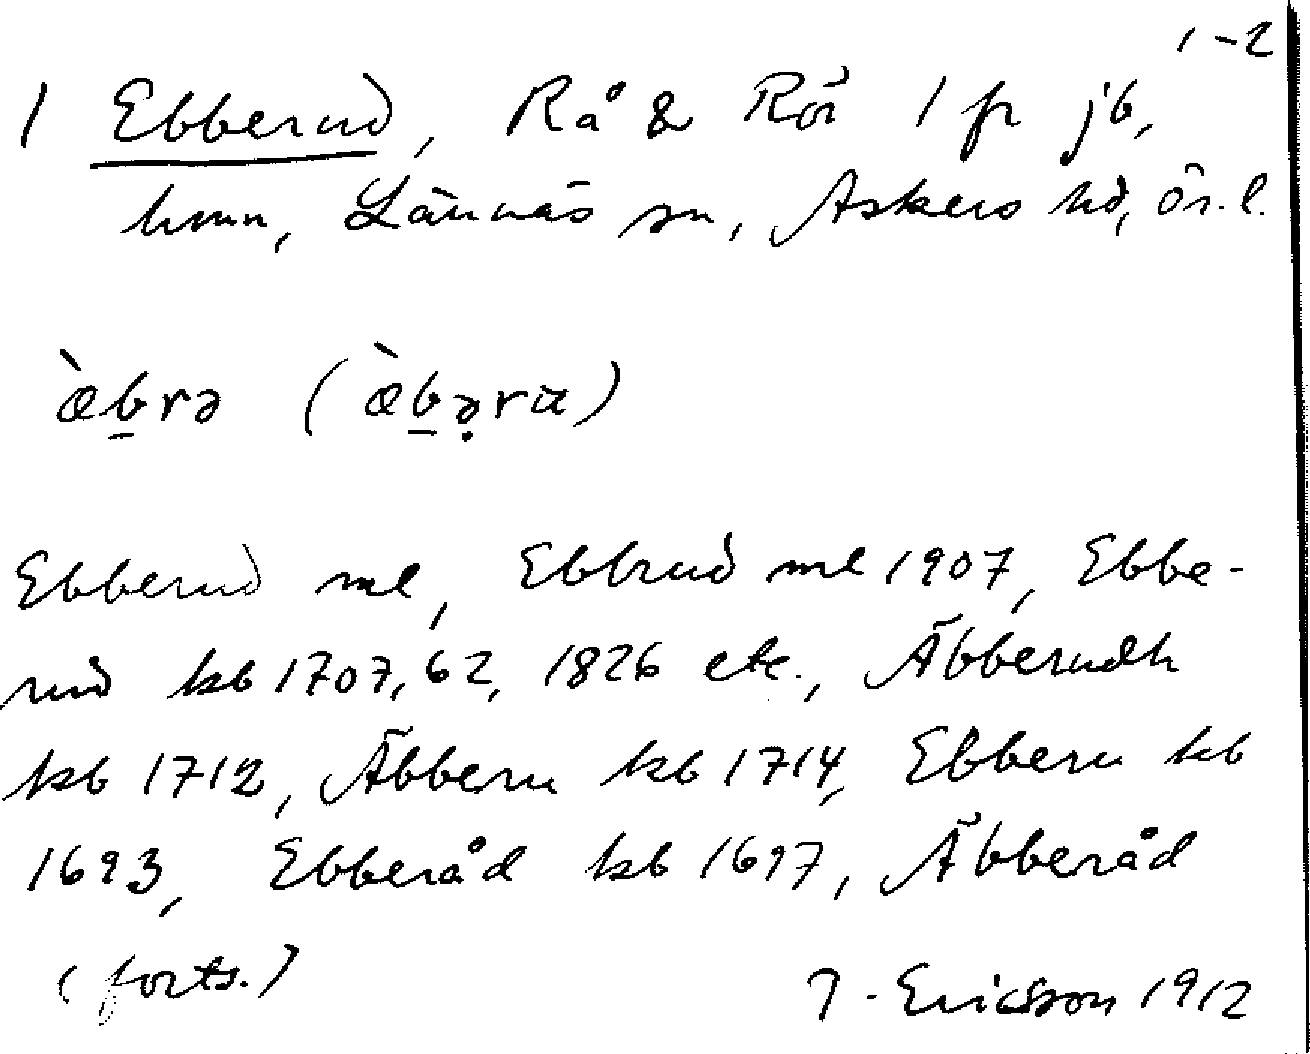 1-2
1 Ebberud, Rå & Rör 1 fr jb,
hmn, Lännäs sn, Askers hd, Ör. l.
æ̀b̲rə (æ̀b̲ə̣ra)
Ebberud ml, Ebbrud ml 1907, Ebbe-
rud kb 1707, 62, 1826 etc., Äbberudh
kb 1712, Äbberu kb 1714, Ebberu kb
1693, Ebberåd kb 1697, Äbberåd
(forts.) J. Ericsson 1912